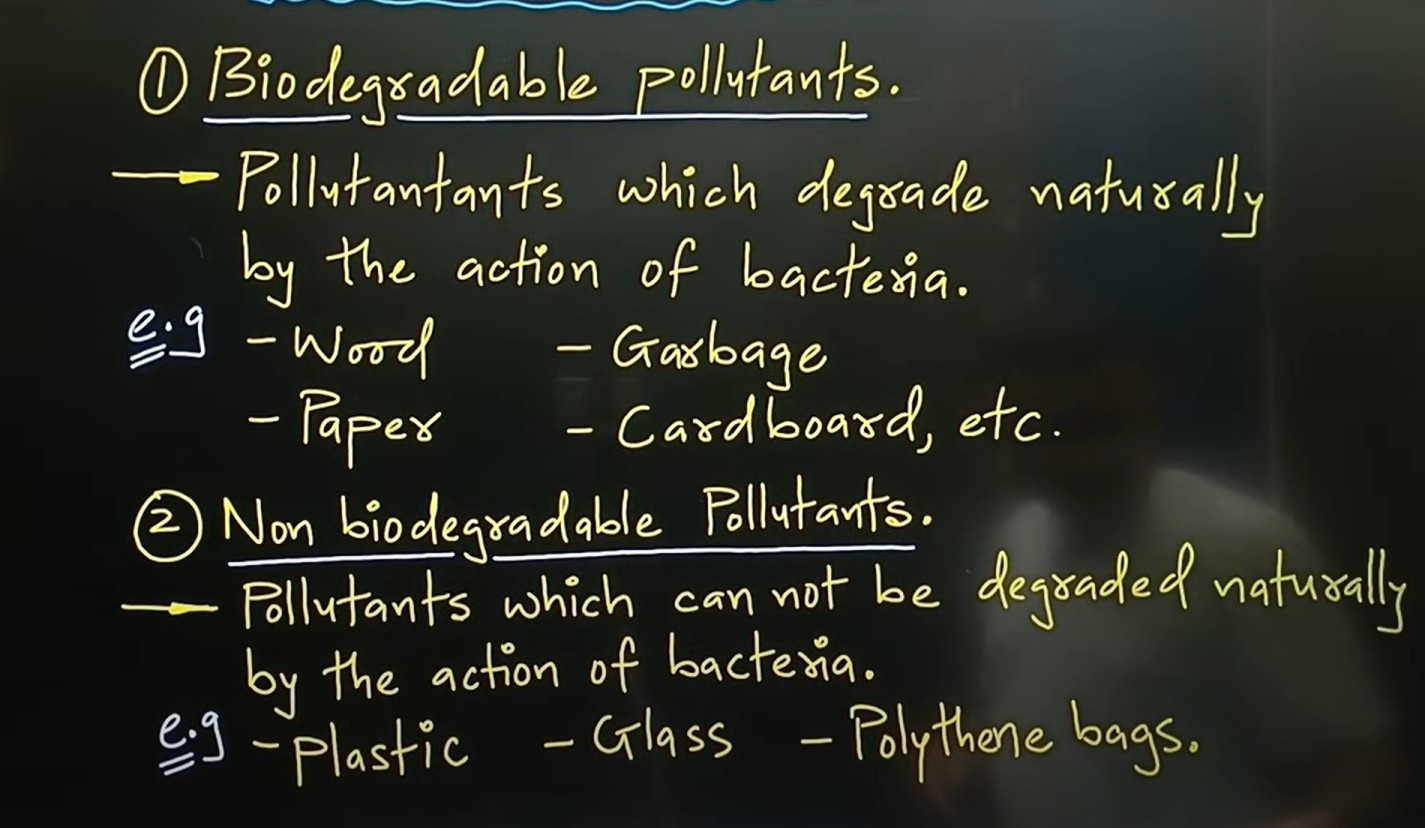 ① Biodegradable pollutants.
→ Pollutantants which degrade naturally
by the action of bacteria.
e.g - Wood - Garbage
- Paper - Cardboard, etc.
② Non biodegradable Pollutants.
→ Pollutants which can not be degraded naturally
by the action of bacteria.
e.g - Plastic - Glass - Polythene bags.